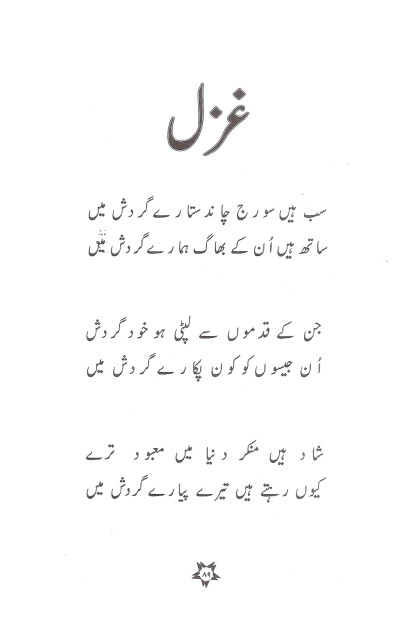 غزل
سب ہیں سورج چاند ستارے گردش میں
ساتھ ہیں اُن کے بھاگ ہمارے گردش میں
جن کے قدموں سے لپٹی ہو خود گردش
اُن جیسوں کو کون پکارے گردش میں
شاد ہیں منکر دنیا میں معبود ترے
کیوں رہتے ہیں تیرے پیارے گردش میں
۸۹